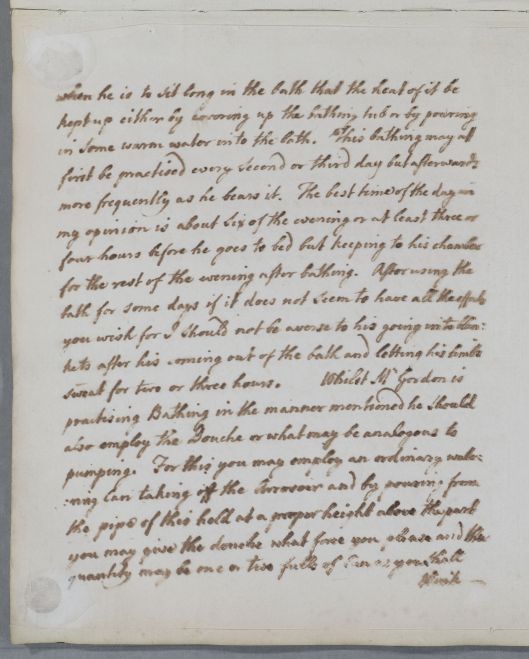 when he is to sit long in the bath that the heat of it be
kept up either by covering up the bathing tub or by pouring
in some warm water into the bath. This bathing may at
first be practised every second or third day but afterwards
more frequently as he bears it. The best time of the day in
my opinion is about six of the evening or at least three or
four hours before he goes to bed but keeping to his chamber
for the rest of the evening after bathing. After using the
bath for some days if it does not seem to have all the effects
you wish for I should not be averse to his going into blan:
kets after his coming out of the bath and letting his limbs
sweat for two or three hours. Whilst Mr Gordon is
practising Bathing in the manner mentioned he should
also employ the Douche or what may be analogous to
pumping. For this you may employ an ordinary wate:
:ring Can taking off the and by pouring from
the pipe of this held at a proper height above the part
you may give the douche what force you please and the
quantity may be one or two fulls of Can as you shall
think